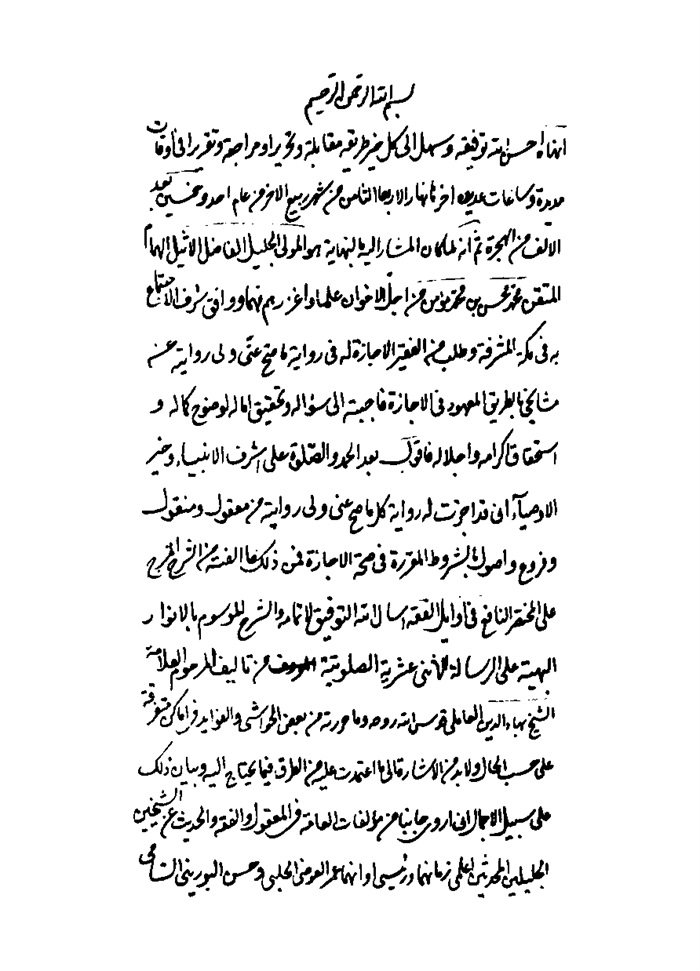 بسم الله الرحمن الرحيم
انهاه احسن الله توفيقه وسهل الى كل خير طريقه مقابلة وتحريرا ومراجعة وتقريرا فى اوقات
مديدة وساعات عديدة اخرها نهار الاربعا الثامن من شهر ربيع الاخر من عام احد وخمسين بعد
الالف من الهجرة ثم انه لما كان المشار اليه بالنهاية هو المولى الجليل الفاضل الاثيل الهمام
المتقن محمد محسن بن محمد مؤمن من اجل الاخوان علما واغزرهم فهما ووافق شرف الاجتماع
به فى مكة المشرفة وطلب من الفقير الاجازة له فى رواية ما صح عنى ولى روايته عن
مشايخى بالطريق المعهود فى الاجازة فاجبته الى سؤاله وتحقيق اماله لوضوح كماله و
استحقاق اكرامه واجلاله فاقول بعد الحمد والصلوة على اشرف الانبياء وخير
الاوصيآء انى قد اجزت له رواية كل ما صح عنى ولى روايته من معقول ومنقول
وفروع واصول بالشروط المقررة فى صحة الاجازة فمن ذلك ما الفته من الشرح المخرج
على المختصر النافع فى اوايل الفقه اسال الله التوفيق لاتمامه والشرح الموسوم بالانوار
البهية على الرسالة الاثنى عشرية الصلوتية من تاليف المرحوم العلامة
الشيخ بهاء الدين العاملى قدس الله روحه وما حررته من بعض الحواشى والفوايد فى اماكن متفرقة
على حسب الحال ولا بد من الاشارة الى ما اعتمدت عليه من الطرق فيما يحتاج اليه وبيان ذلك
على سبيل الاجمال انى اروى جانبا من مؤلفات العامة فى المعقول والفقه والحديث عن الشيخين
الجليلين المحدثين اعلمى زمانهما ورئيسى اوانهما عمر العرضى الحلبى وحسن البورينى الشامى